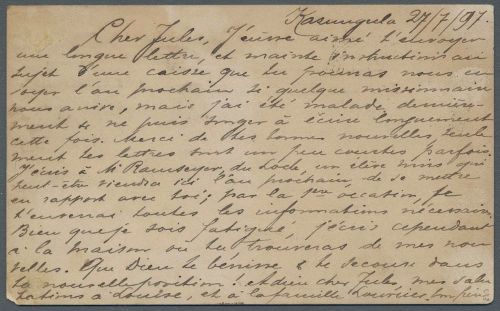 Kazungula 27/7/97.
Cher Jules, J'eusse aimé t'envoyer
une longue lettre, et mainte instructions au
sujet d'une caisse que tu pourras nous en
voyer l'an prochain si quelque missionnaire
nous arrive, mais j'ai été malade dernière-
ment & ne puis songer à écrire longuement
cette fois. Merci de tes bonnes nouvelles, seule
ment tes lettres sont un peu courtes parfois.
J'écris à Mr Ramseyer, du Locle, un élève miss. qui
peut-être viendra ici l'an prochain, de se mettre
en rapport avec toi; par la 1ère occasion, je
t'enverrai toutes les informations nécessaires.
Bien que je sois fatigué, j'écris cependant
à la maison où tu trouveras de mes nou
velles. Que Dieu te bénisse & te secoure dans
ta nouvelle position. Adieu cher Jules, mes salu
tations à Louise, et à la famille